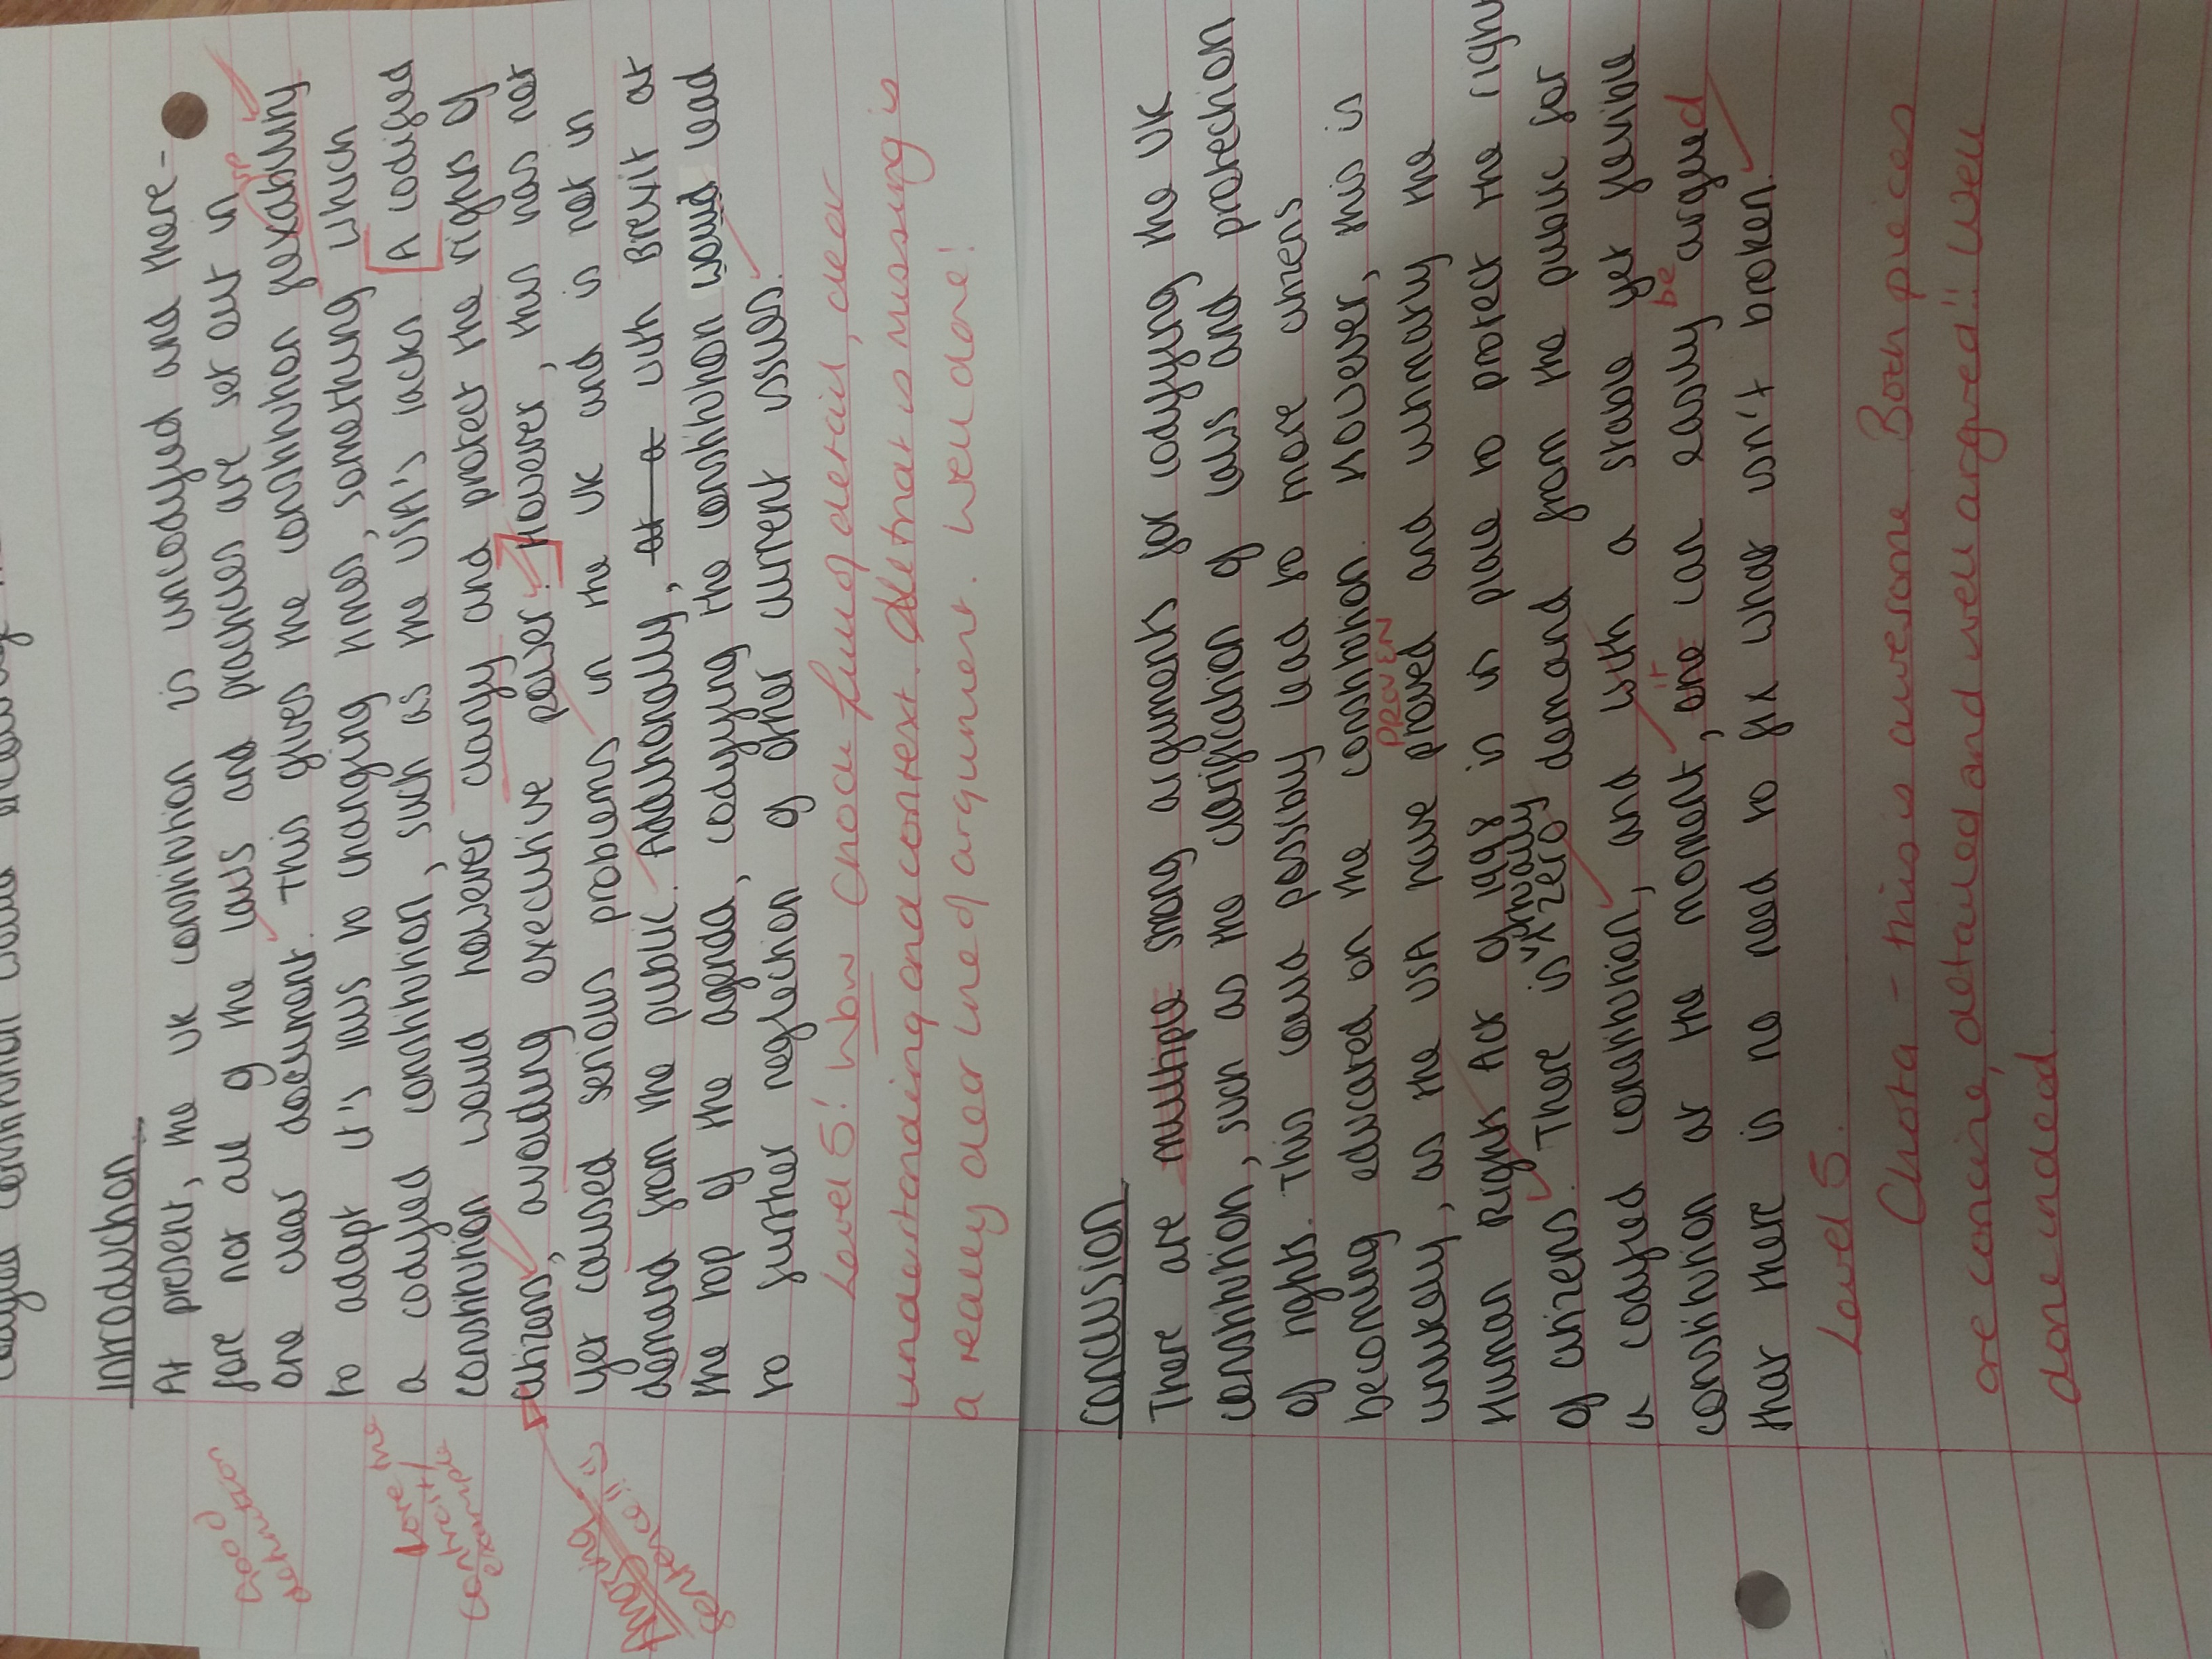 Introduction
At present, the UK constitution is uncodified and there-
fore not all of the laws and practices are set out in
sp
one clear document. This gives the constitution flexabuility
Good definition
to adapt it's laws to changing times, something which
a codified constitution, such as the USA's lacks. [A codified
Love the contrast/example
constitution would however clarify and protect the rights of
citizens, avoiding executive power.] However, this has not
Amazing sentence!! :)
yet caused serious problems in the UK and is not in
demand from the public. Additionally, at a with Brexit at
the top of the agenda, codifying the constitution would lead
to further neglection of other current issues.
Level 5! Wow Chota full of detail, clear
understanding and context. All that is missing is
a really clear line of argument. Well done!
Conclusion
There are multiple strong arguments for codifying the UK
constitution, such as the clarification of laws and protection
of rights. This could possibly lead to more citizens
becoming educated on the constitution. However, this is
PROVEN
unlikely, as the USA have proved and ultimately the
Human Rights Act of 1998 is in place to protect the right
virtually
of citizens. There is zero demand from the public for
a codified constitution, and with a stable yet flexible
it be
constitution at the moment, one can easily argued
that there is no need to fix what isn't broken.
Level 5.
Chota - this is awesome. Both pieces
are concise, detailed and well argued!! Well
done indeed.